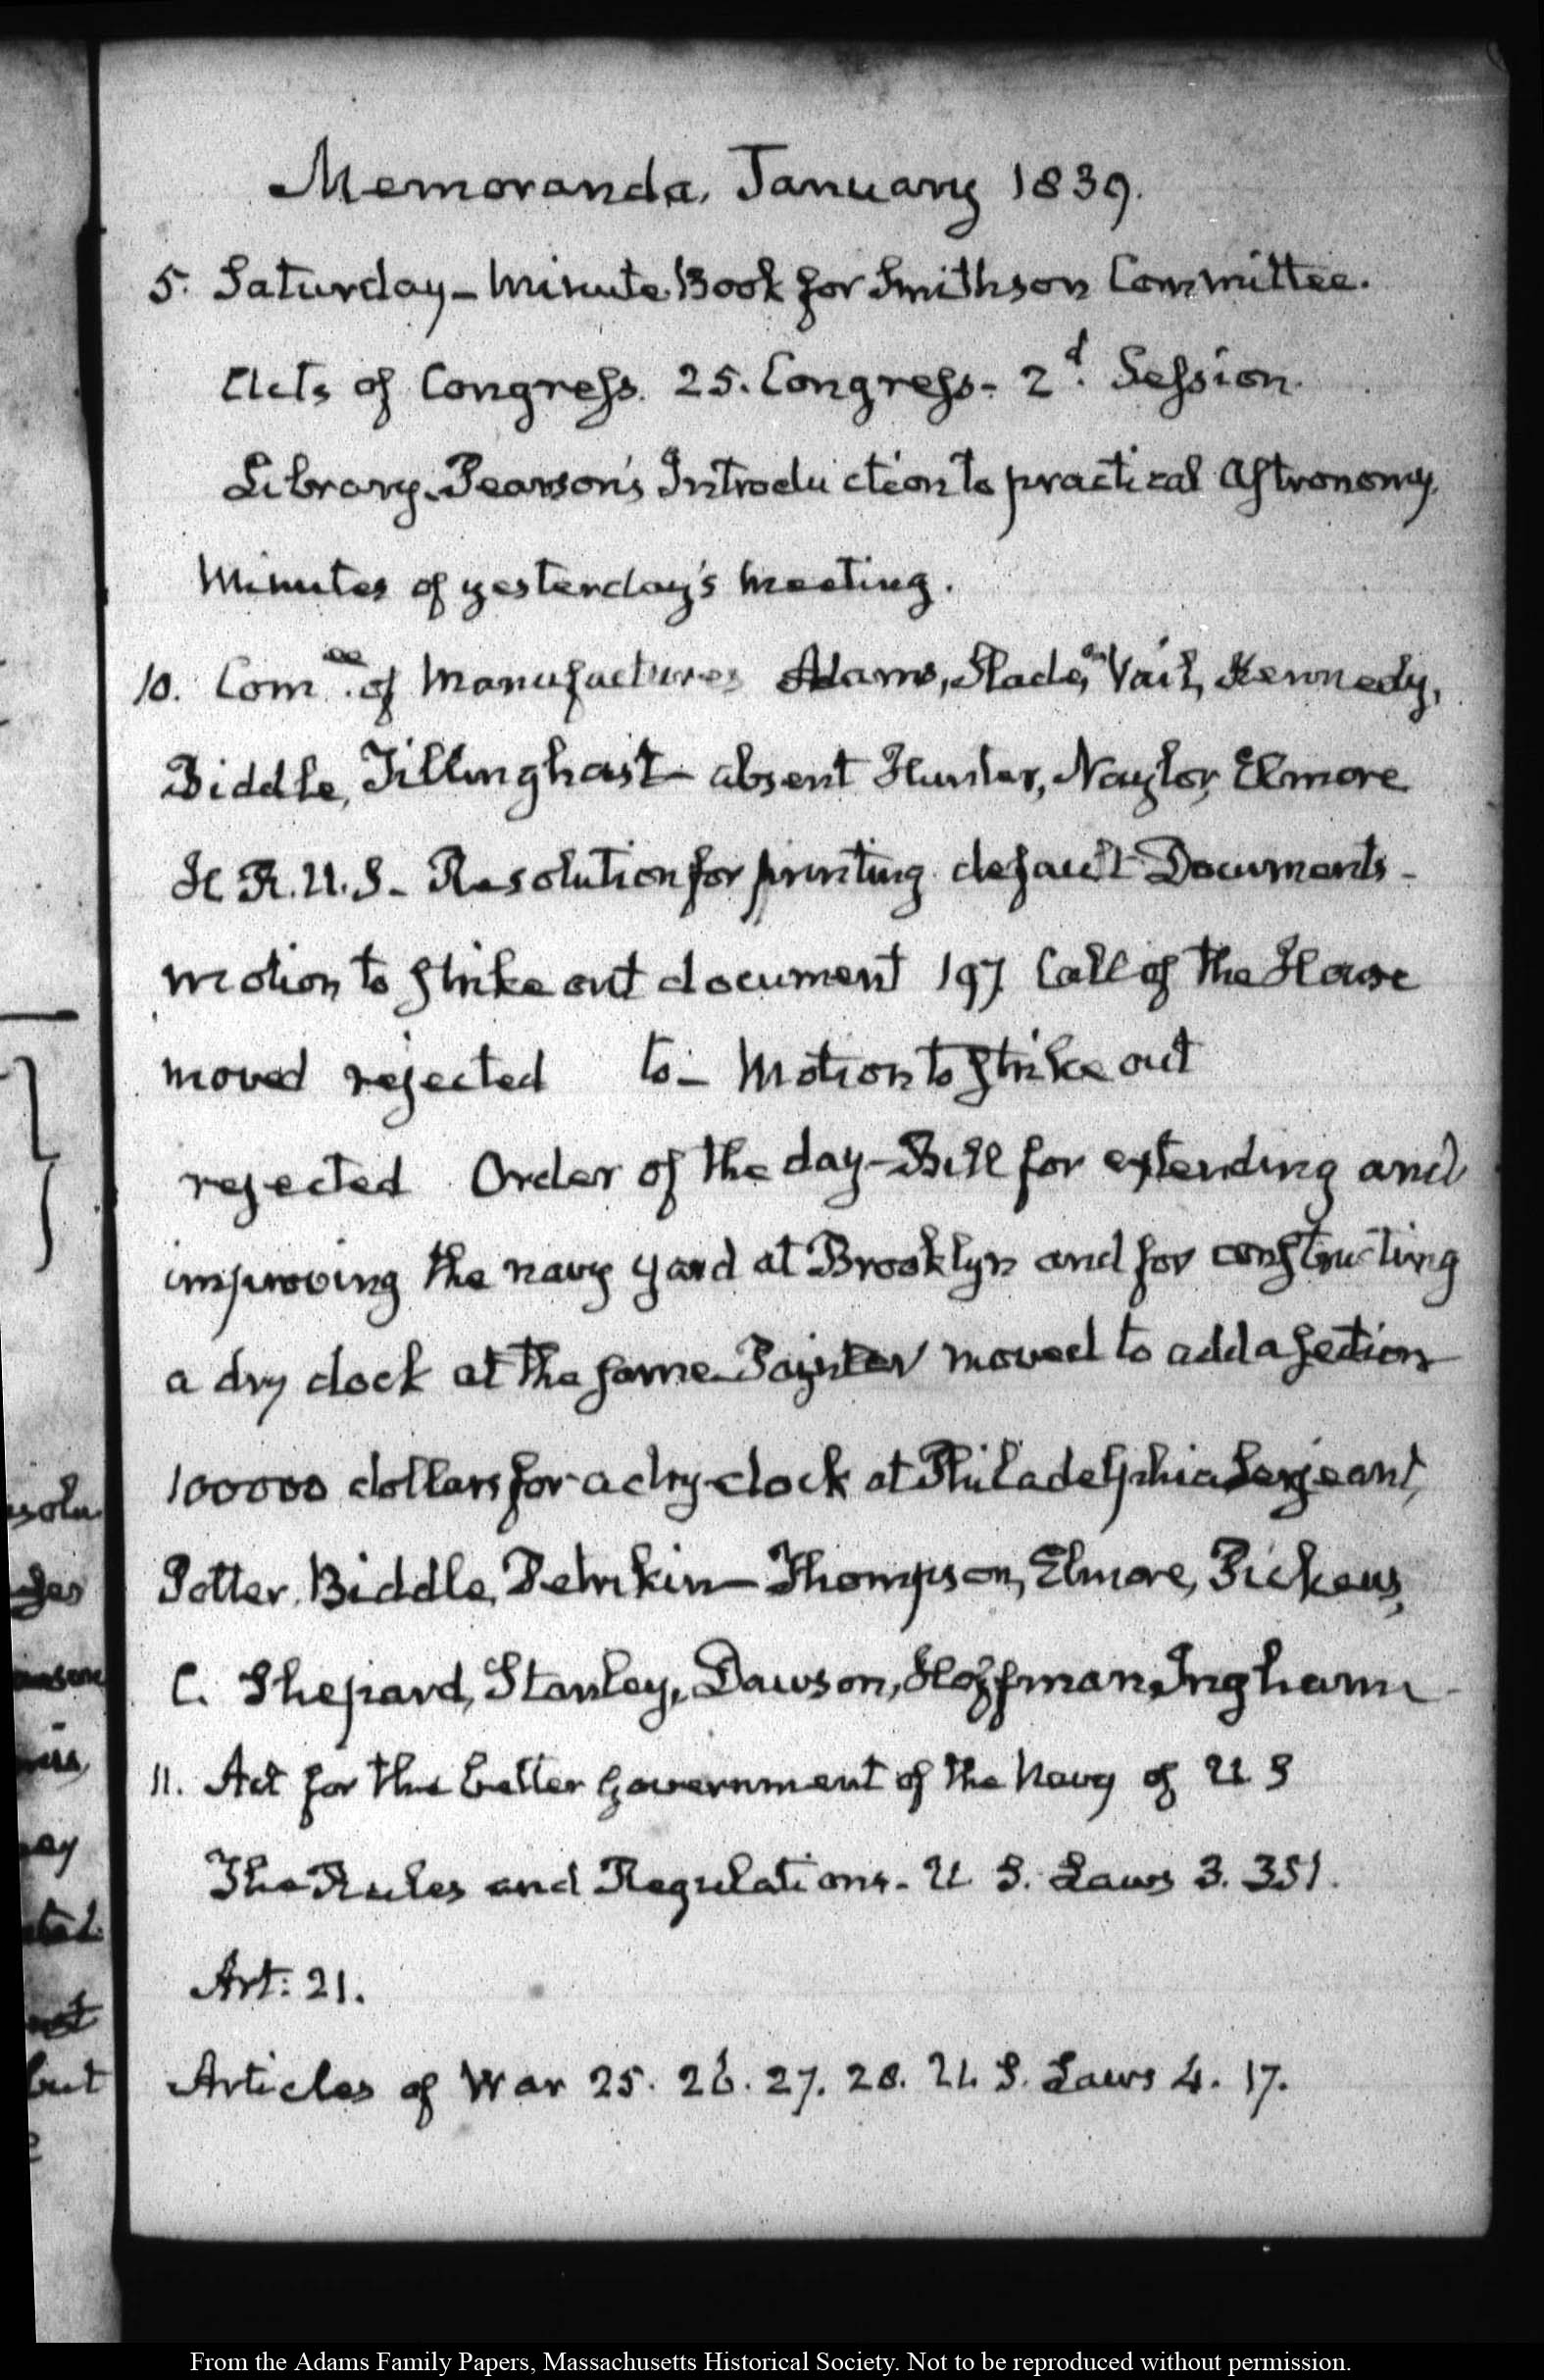 Memoranda, January 1839.
5. Saturday – Minute Book for Smithson Committee.
Acts of Congress. 25. Congress – 2d. Session.
Library. Pearson's Introduction to practical Astronomy.
Minutes of yesterday's meeting.
10. Comee. of Manufactures Adams, Slade, Vail, Kennedy,
Biddle, Tillinghast – absent Hunter, Naylor, Elmore
H.R.U.S – Resolution for printing default Documents –
motion to strike out document 197 Call of the House
moved rejected to – Motion to strike out
rejected Order of the day – Bill for extending and
improving the navy yard at Brooklyn and for constructing
a dry dock at the same. Paynter moved to add a section
100000 dollars for a dry-dock at Philadelphia Sergeant,
Potter, Biddle, Petrikin – Thompson, Elmore, Pickens,
C. Shepard, Stanley, Dawson, Hoffman, Ingham –
11. Act for the better government of the Navy of U S
The Rules and Regulations – U. S. Laws 3. 351.
Art: 21.
Articles of War 25. 26. 27. 28. U. S. Laws 4. 17.
but
From the Adams Family Papers, Massachusetts Historical Society. Not to be reproduced without permission.